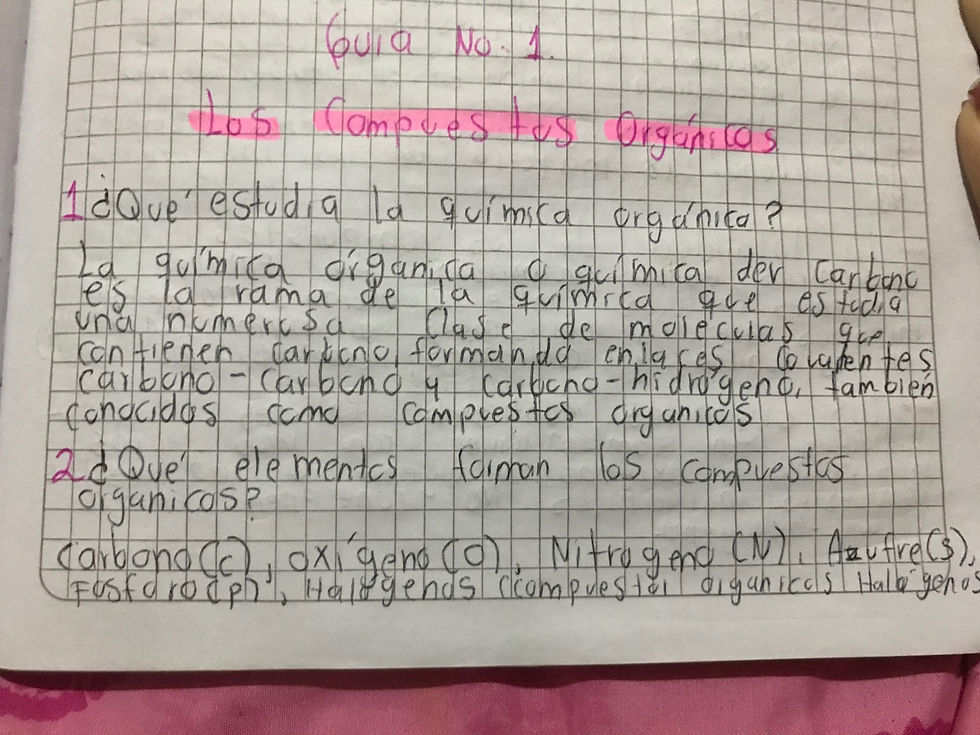 Guia No. 1.
Los Compuestos Orgánicos
1 ¿Qué estudia la química orgánica?
La química órganica o química del Carbono
es la rama de la química que estudia
una numerosa Clase de moleculas que
contienen carbono formando enlaces covalentes
carbono-carbono y carbono-hidrógeno, tambien
conocidos como compuestos organicos
2 ¿Qué elementos forman los compuestos
organicos?
Carbono (C), oxígeno (O), Nitrogeno (N), Azufre (S),
Fosforo (ph), Halógenos (compuestos organicos Halógenos